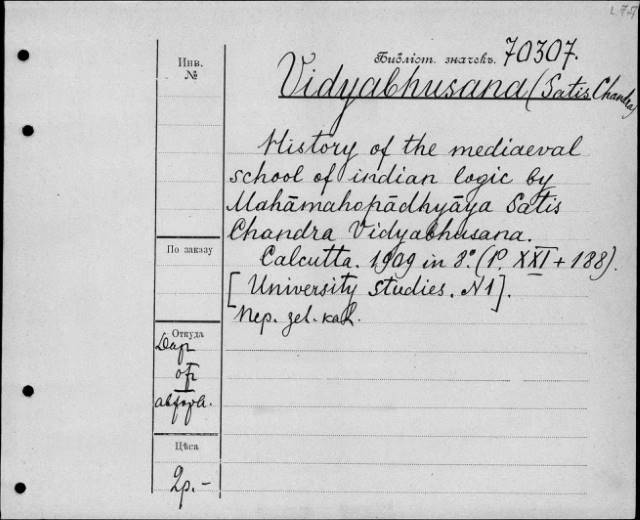 Инв.
№
Библіот. значекъ. 70307.
Vidyabhusana (Satis Chandra)
History of the mediaeval
school of indian logic by
Mahāmahopādhyāya Satis
Chandra Vidyabhusana.
Calcutta. 1909 in 8°. (P. XXI + 188).
[University studies. N1].
Пер. зел. кал.
По заказу
Откуда
Дар
от
автора.
Цѣна
2р. -